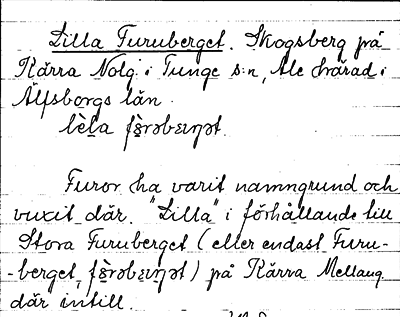 Lilla Furuberget. Skogsberg på
Kärra Nolg. i Tunge s:n, Ale härad i
Älfsborgs län.
lèla fɵ̀rəbɛrɳət.
Furor ha varit namngrund och
vuxit där. "Lilla" i förhållande till
Stora Furuberget (eller endast Furu-
-berget, fɵ̀rəbɛrɳət) på Kärra Mellang
där intill.